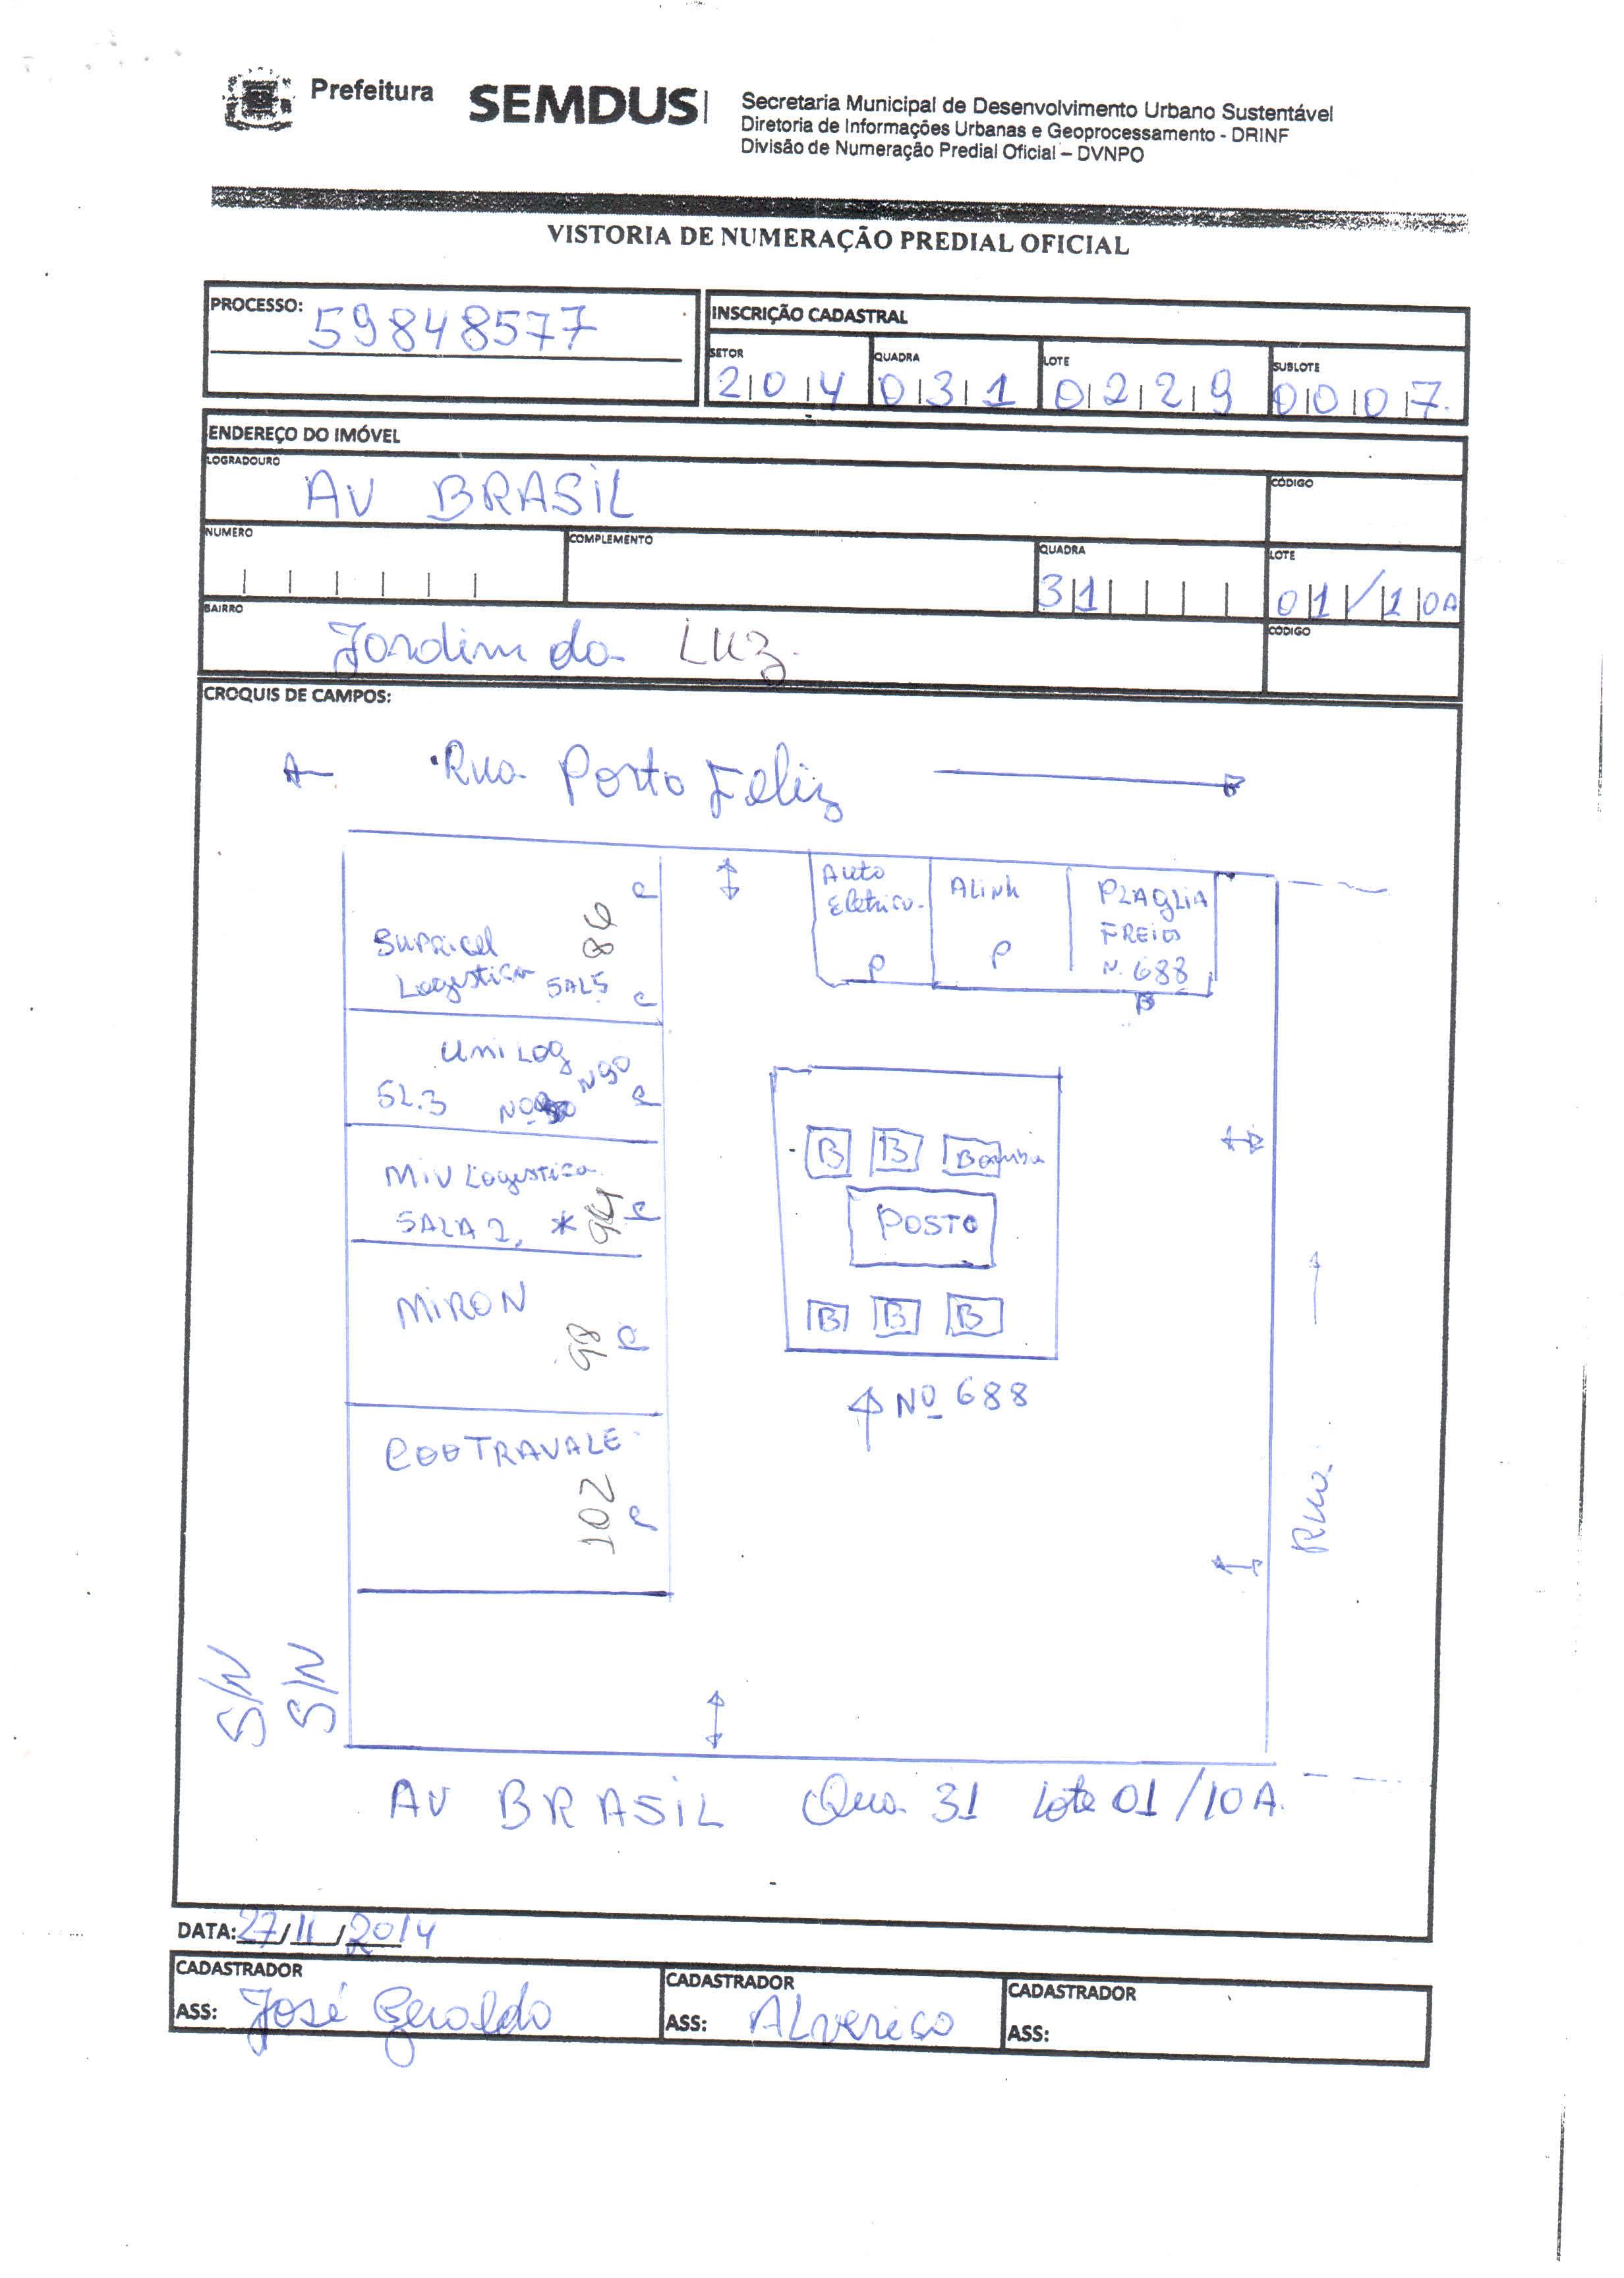 Prefeitura SEMDUS
Secretaria Municipal de Desenvolvimento Urbano Sustentável
Diretoria de Informações Urbanas e Geoprocessamento - DRINF
Divisão de Numeração Predial Oficial – DVNPO
VISTORIA DE NUMERAÇÃO PREDIAL OFICIAL
PROCESSO: 59848577
INSCRIÇÃO CADASTRAL
SETOR 204 QUADRA 031 LOTE 0229 SUBLOTE 0007
ENDEREÇO DO IMÓVEL
LOGRADOURO AV BRASIL CÓDIGO
NUMERO COMPLEMENTO QUADRA 31 LOTE 01/10A
BAIRRO Jardim da Luz CÓDIGO
CROQUIS DE CAMPOS:
A Rua Porto Feliz
Supricel
Logistica SAL5 86
Auto
Eletrico P
ALink P
PLAGLIA
FREIOS
N. 688
Uni Log
SL.3 N90
B B Bomba
MiV Logistica
SALA 2, * 94
POSTO
MIRON 98
B B B
Nº 688
COOTRAVALE
102
Rua
S/N
S/N
AV BRASIL Qua 31 Lote 01/10A.
DATA: 27/11/2014
CADASTRADOR
ASS: José Geraldo
CADASTRADOR
ASS: Alverico
CADASTRADOR
ASS: